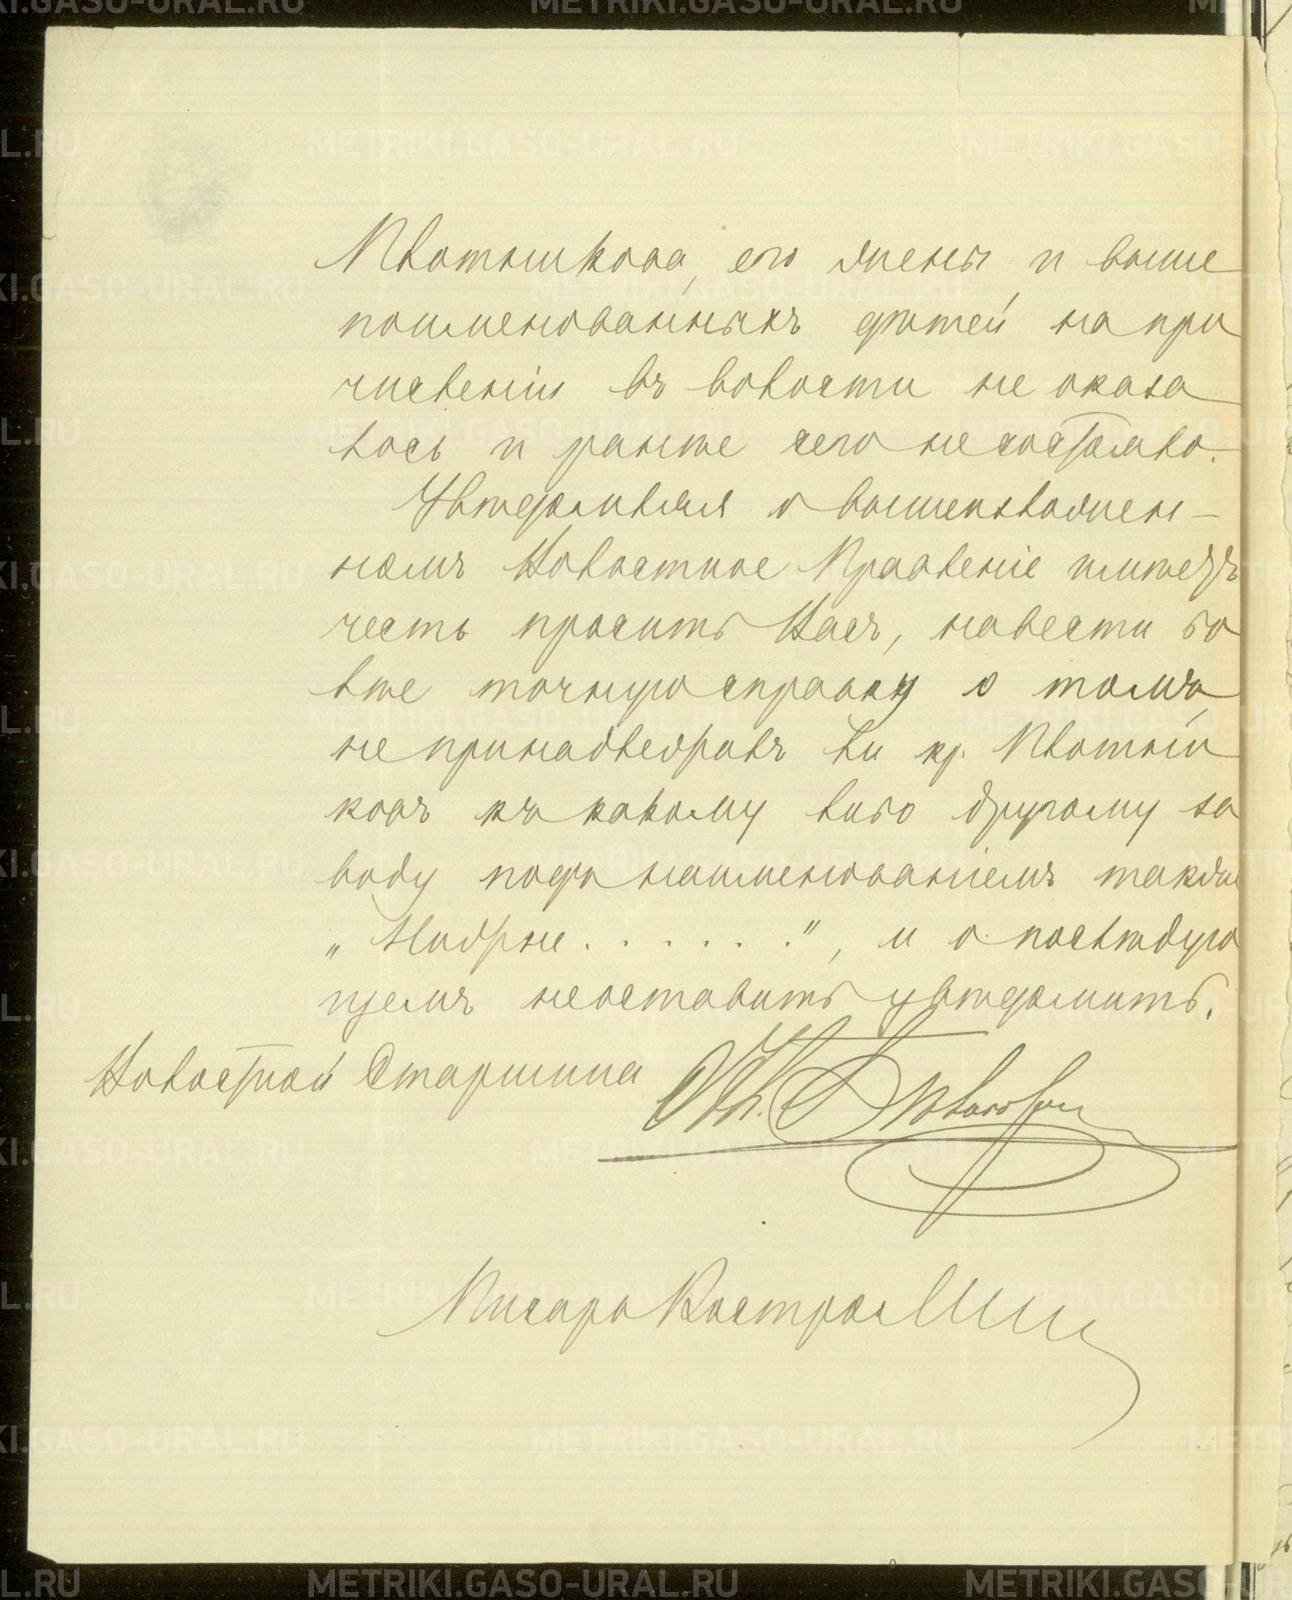 Плотникова, его жены, и выше
поименованныхъ дѣтей на при
численiи въ волости не оказа
лось и ранѣе сего не состояло.
Увѣдомляя о вышеизложен-
номъ Волостное Правленiе имѣетъ
честь просить Васъ, навести бо
лѣе точную справку о томъ,
не принадлежалъ ли кр. Плотни
ковъ къ какому либо другому за
воду подъ наименованiемъ также
„Нидрне......", и о послѣдую
щемъ неоставить увѣдомить.
Волостной Старшина
Писарь
METRIKI.GASO-URAL.RU